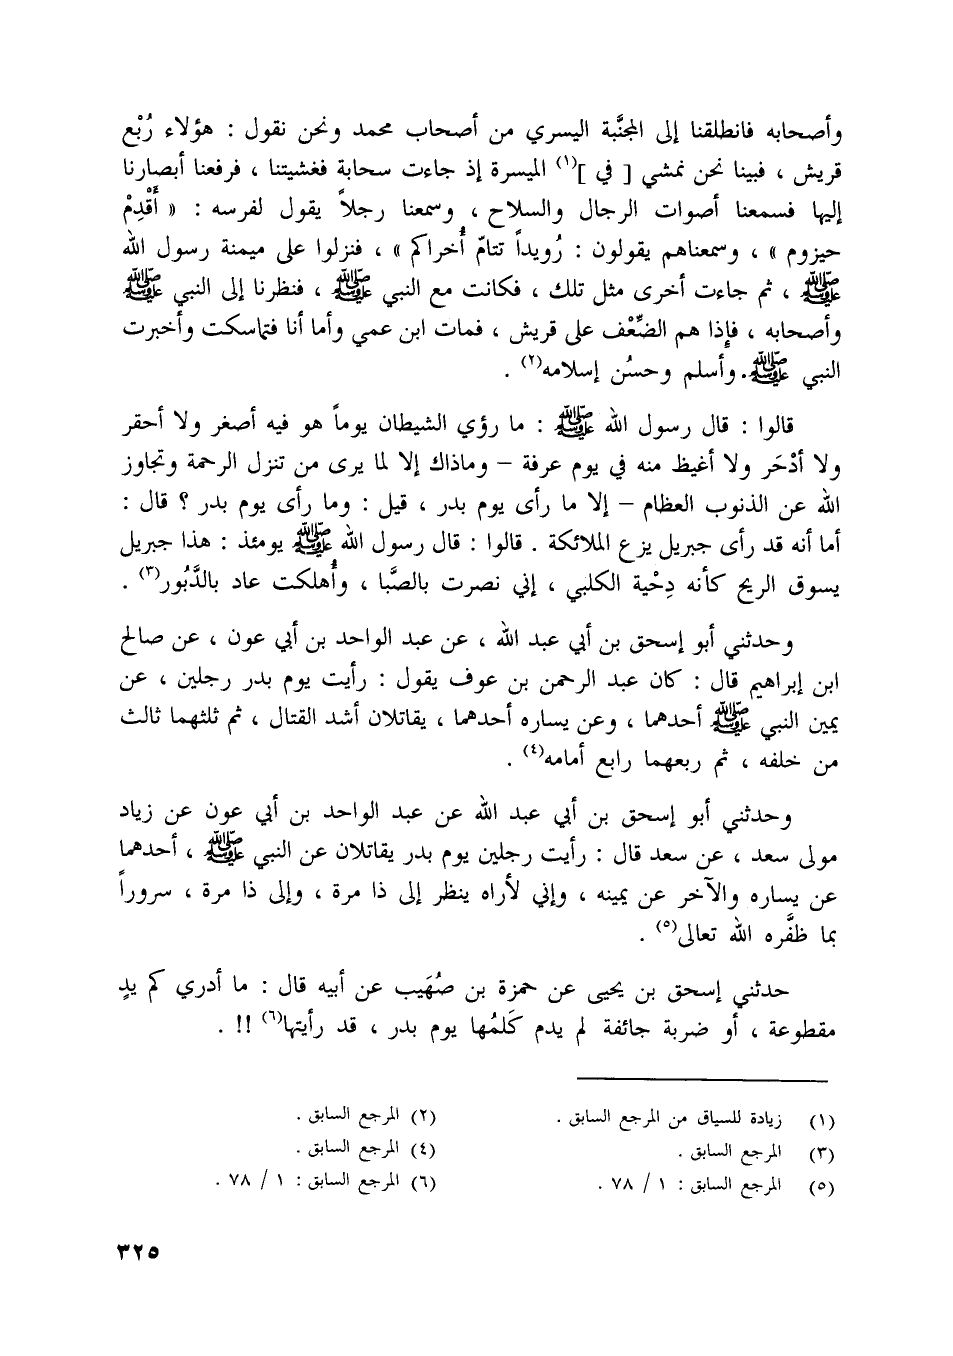 وأصحابه فانطلقنا إلى المجنَّبة اليسري من أصحاب محمد ونحن نقول : هؤلاء رُبْع
قريش ، فبينا نحن نمشي [ في ](١) الميسرة إذ جاءت سحابة فغشيتنا ، فرفعنا أبصارنا
إليها فسمعنا أصوات الرجال والسلاح ، وسمعنا رجلاً يقول لفرسه : « أَقْدِمْ
حيزوم » ، وسمعناهم يقولون : رُويداً تتامّ أُخراكم » ، فنزلوا على ميمنة رسول الله
ﷺ ، ثم جاءت أخرى مثل تلك ، فكانت مع النبي ﷺ ، فنظرنا إلى النبي ﷺ
وأصحابه ، فإِذا هم الضِّعْف على قريش ، فمات ابن عمي وأما أنا فتماسكت وأخبرت
النبي ﷺ. وأسلم وحسُن إسلامه(٢) .
قالوا : قال رسول الله ﷺ : ما رؤي الشيطان يوماً هو فيه أصغر ولا أحقر
ولا أدْحَر ولا أغيظ منه في يوم عرفة – وماذاك إلا لما يرى من تنزل الرحمة وتجاوز
الله عن الذنوب العظام – إلا ما رأى يوم بدر ، قيل : وما رأى يوم بدر ؟ قال :
أما أنه قد رأى جبريل يزع الملائكة . قالوا : قال رسول الله ﷺ يومئذ : هذا جبريل
يسوق الريح كأنه دِحْية الكلبي ، إني نصرت بالصَّبا ، وأُهلكت عاد بالدَّبُور(٣) .
وحدثني أبو إسحق بن أبي عبد الله ، عن عبد الواحد بن أبي عون ، عن صالح
ابن إبراهيم قال : كان عبد الرحمن بن عوف يقول : رأيت يوم بدر رجلين ، عن
يمين النبي ﷺ أحدهما ، وعن يساره أحدهما ، يقاتلان أشد القتال ، ثم ثلثهما ثالث
من خلفه ، ثم ربعهما رابع أمامه(٤) .
وحدثني أبو إسحق بن أبي عبد الله عن عبد الواحد بن أبي عون عن زياد
مولى سعد ، عن سعد قال : رأيت رجلين يوم بدر يقاتلان عن النبي ﷺ ، أحدهما
عن يساره والآخر عن يمينه ، وإني لأراه ينظر إلى ذا مرة ، وإلى ذا مرة ، سروراً
بما ظفَّره الله تعالى(٥) .
حدثني إسحق بن يحيى عن حمزة بن صُهَيب عن أبيه قال : ما أدري كم يدٍ
مقطوعة ، أو ضربة جائفة لم يدم كَلمُها يوم بدر ، قد رأيتها(٦) !! .
(١) زيادة للسياق من المرجع السابق . (٢) المرجع السابق .
(٣) المرجع السابق . (٤) المرجع السابق .
(٥) المرجع السابق : ١ / ٧٨ . (٦) المرجع السابق : ١ / ٧٨ .
٣٢٥